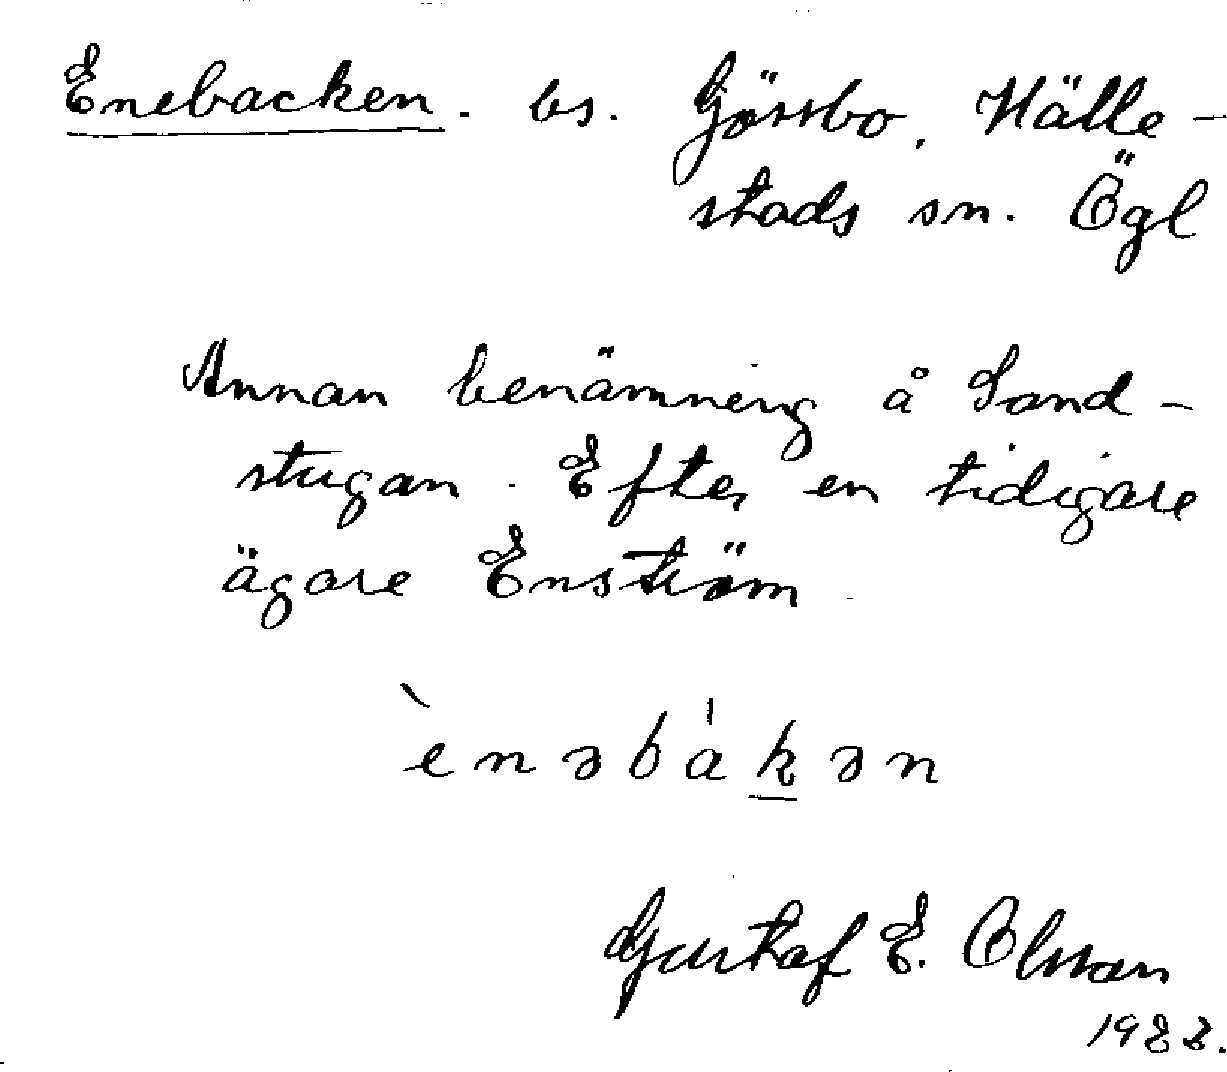 Enebacken. bs. Gössbo, Hälle-
stads sn. Ögl
Annan benämning å Sand-
stugan. Efter en tidigare
ägare Enström.
`enəbákən
Gustaf E. Olsson